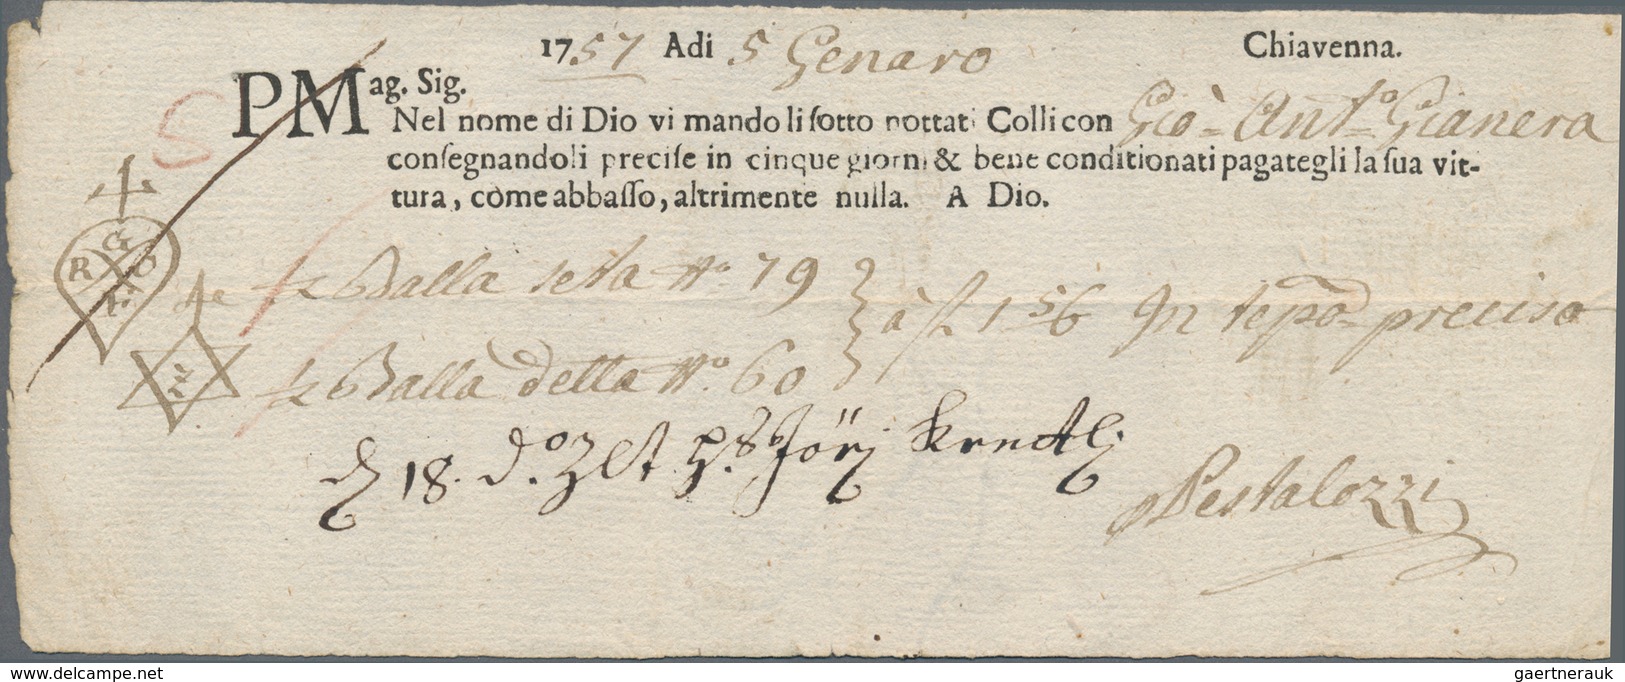 1757 Adi 5 Genaro Chiavenna.
PMag. Sig.
Nel nome di Dio vi mando li ſotto nottati Colli con Gio: Ant.º Gianera
conſegnandoli preciſe in cinque giorni & bene conditionati pagategli la ſua vit-
tura, come abbaſſo, altrimente nulla. A Dio.
S
R G O
½ Balla seta Nº 79 } a f 156 In tepo preciso
½ Balla detta Nº 60
18. dº Jörj
Pestalozzi
gaertnerauk